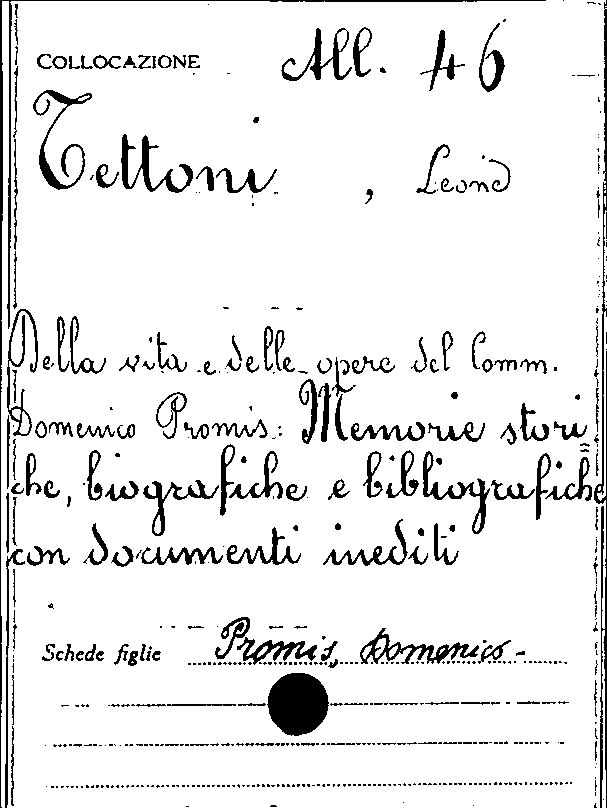 COLLOCAZIONE All. 46
Tettoni , Leone
Della vita e delle opere del Comm.
Domenico Promis: Memorie stori=
che, biografiche e bibliografiche
con documenti inediti
Schede figlie Promis, Domenico-